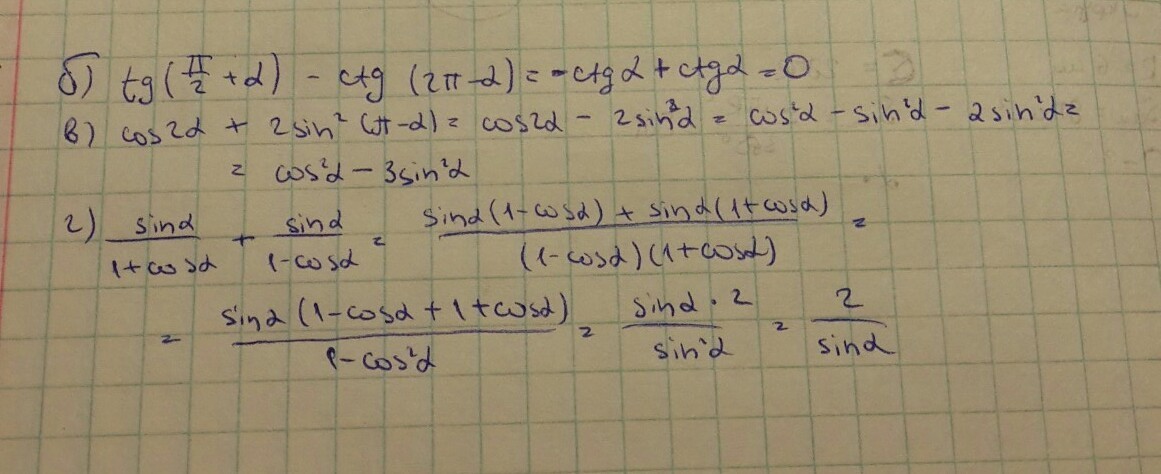 б) tg(π/2 + α) - ctg (2π - α) = -ctgα + ctgα = 0
в) cos2α + 2sin² (π-α) = cos2α - 2sin²α = cos²α - sin²α - 2sin²α =
= cos²α - 3sin²α
г) sinα/(1+cosα) + sinα/(1-cosα) = (sinα(1-cosα) + sinα(1+cosα))/((1-cosα)(1+cosα)) =
= (sinα (1-cosα + 1 + cosα))/(1-cos²α) = (sinα · 2)/(sin²α) = 2/sinα